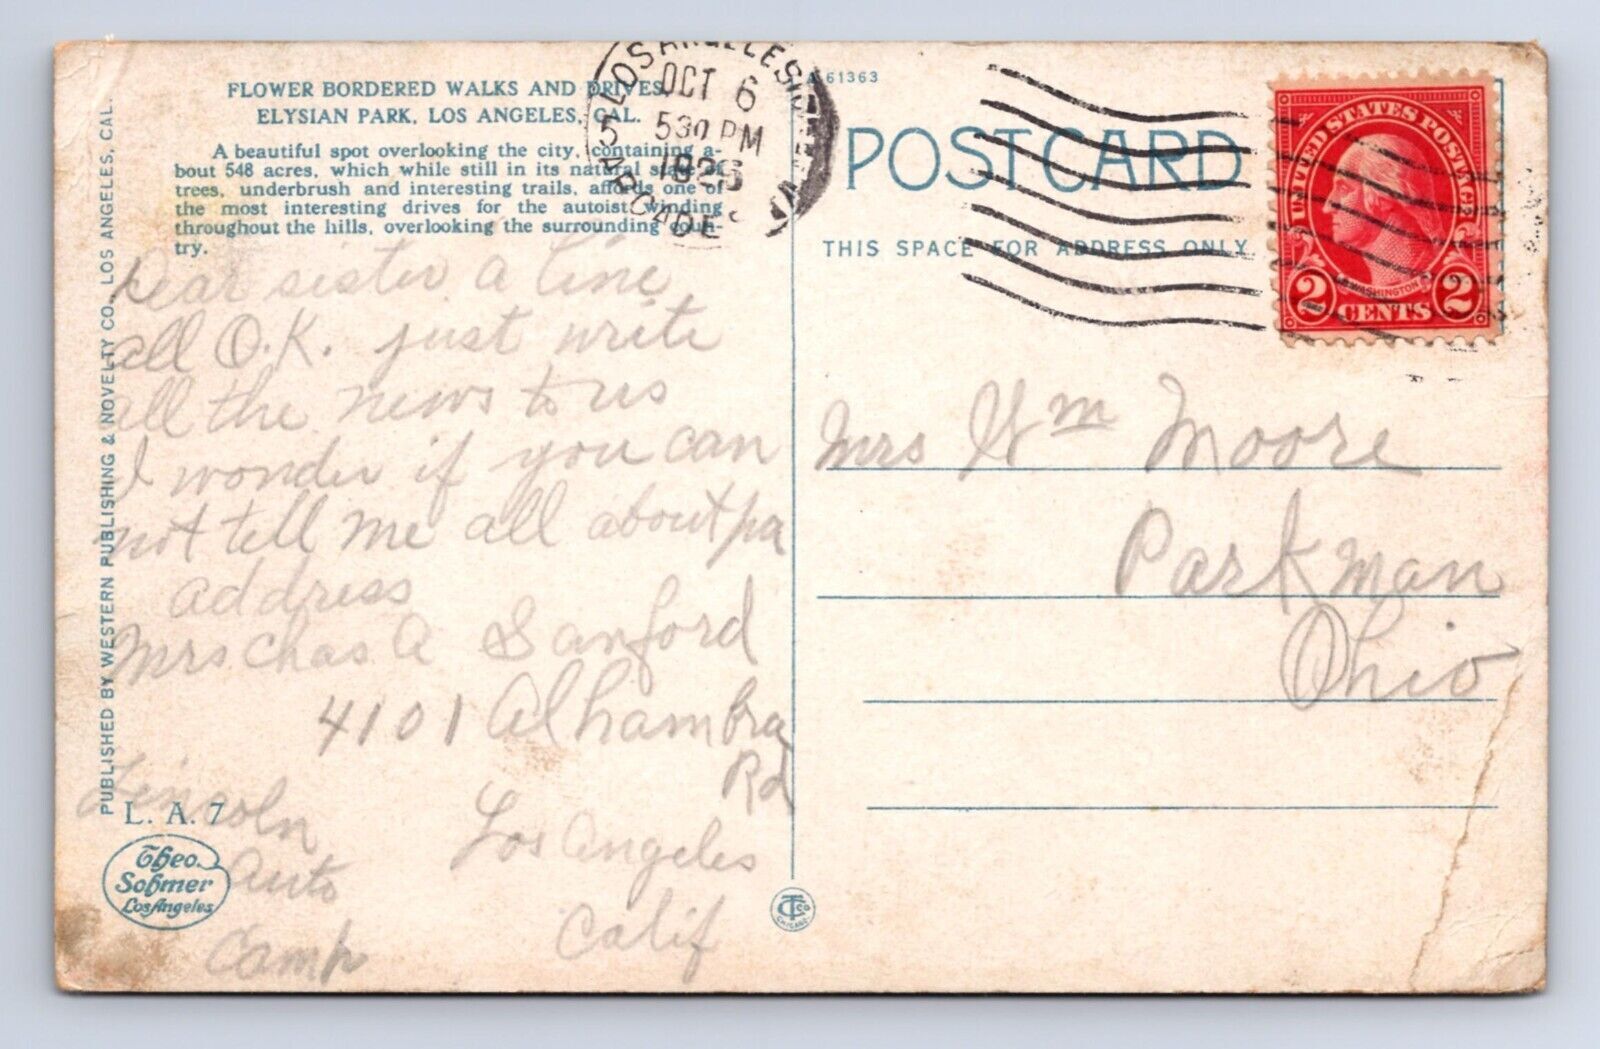 FLOWER BORDERED WALKS AND DRIVES,
ELYSIAN PARK, LOS ANGELES, CAL.
A beautiful spot overlooking the city, containing a-
bout 548 acres, which while still in its natural state of
trees, underbrush and interesting trails, affords one of
the most interesting drives for the autoist winding
throughout the hills, overlooking the surrounding coun-
try.
PUBLISHED BY WESTERN PUBLISHING & NOVELTY CO., LOS ANGELES, CAL.
Dear sister a line
all O.K. just write
all the news to us
I wonder if you can
not tell me all about pa
address
Mrs Chas A Sanford
4101 Alhambra
Rd
Los Angeles
Calif
Lincoln
Auto
Camp
L. A. 7
Theo.
Sohmer
Los Angeles
LOS ANGELES
OCT 6
530 PM
1926
ARCADE STA
A 61363
POST CARD
THIS SPACE FOR ADDRESS ONLY
UNITED STATES POSTAGE
WASHINGTON
2 CENTS 2
Mrs Wm Moore
Parkman
Ohio
CT Co
CHICAGO